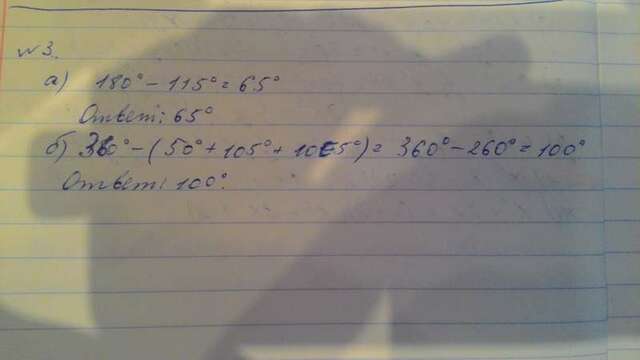 №3.
а) 180° - 115° = 65°
Ответ: 65°
б) 360° - (50° + 105° + 105°) = 360° - 260° = 100°
Ответ: 100°.